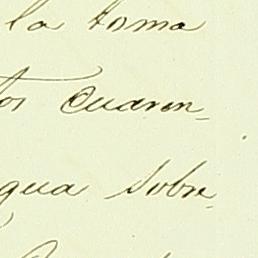 la toma
tos cuaren-
gua sobre